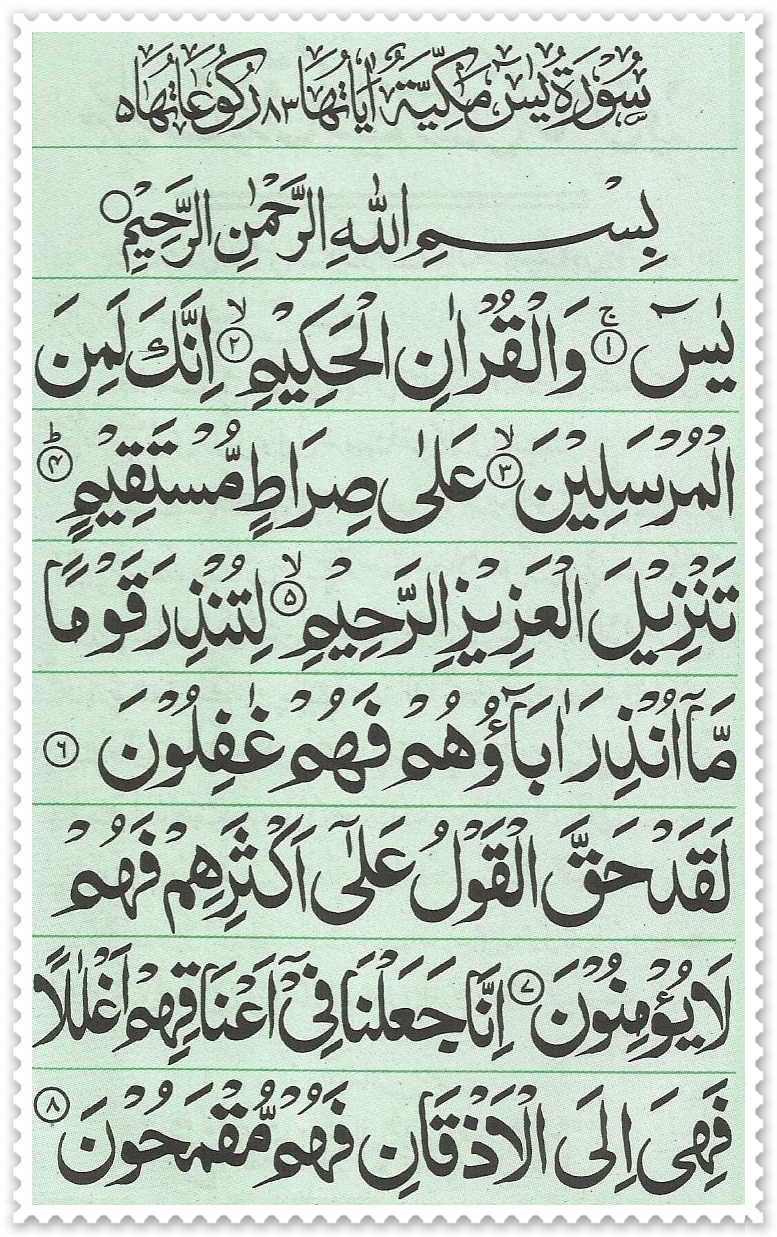 سُوْرَةُ يٰسٓ مَكِّيَّةٌ اٰيَاتُهَا ٨٣ رُكُوْعَاتُهَا ٥
بِسْمِ اللّٰهِ الرَّحْمٰنِ الرَّحِيْمِ ○
يٰسٓ ۚ﴿١﴾ وَالْقُرْاٰنِ الْحَكِيْمِ ۙ﴿٢﴾ اِنَّكَ لَمِنَ
الْمُرْسَلِيْنَ ۙ﴿٣﴾ عَلٰى صِرَاطٍ مُّسْتَقِيْمٍ ؕ﴿۴﴾
تَنْزِيْلَ الْعَزِيْزِ الرَّحِيْمِ ۙ﴿۵﴾ لِتُنْذِرَ قَوْمًا
مَّاۤ اُنْذِرَ اٰبَآؤُهُمْ فَهُمْ غٰفِلُوْنَ ﴿٦﴾
لَقَدْ حَقَّ الْقَوْلُ عَلٰۤى اَكْثَرِهِمْ فَهُمْ
لَا يُؤْمِنُوْنَ ﴿٧﴾ اِنَّا جَعَلْنَا فِيْۤ اَعْنَاقِهِمْ اَغْلٰلًا
فَهِيَ اِلَى الْاَذْقَانِ فَهُمْ مُّقْمَحُوْنَ ﴿٨﴾